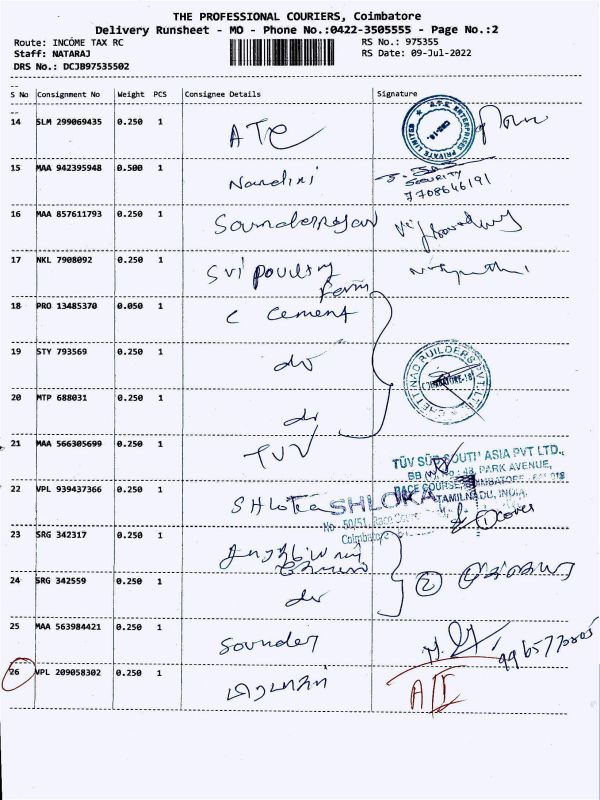 THE PROFESSIONAL COURIERS, Coimbatore
Delivery Runsheet - MO - Phone No.:0422-3505555 - Page No.:2
Route: INCOME TAX RC
RS No.: 975355
Staff: NATARAJ
RS Date: 09-Jul-2022
DRS No.: DCJB97535502
S No Consignment No Weight PCS Consignee Details Signature
14 SLM 299069435 0.250 1 ATE
A.T.E. ENTERPRISES PRIVATE LIMITED
15 MAA 942395948 0.500 1 Nandini
SECURITY
7708646191
16 MAA 857611793 0.250 1 Sounderrajan
17 NKL 7908092 0.250 1 Sri poultry
farm
18 PRO 13485370 0.050 1 C cement
19 STY 793569 0.250 1 do
CHETTINAD BUILDERS PVT. LTD
COIMBATORE-18
20 MTP 688031 0.250 1 do
21 MAA 566305699 0.250 1 TUV
TÜV SÜD SOUTH ASIA PVT LTD.,
43, PARK AVENUE,
RACE COURSE, COIMBATORE - 641 018
TAMILNADU, INDIA.
22 VPL 939437366 0.250 1 SHLoka
SHLOKA
No 50/51, Race Course
Coimbatore
1 cover
23 SRG 342317 0.250 1
24 SRG 342559 0.250 1 do
2
25 MAA 563984421 0.250 1 Sounder
26 VPL 209058302 0.250 1